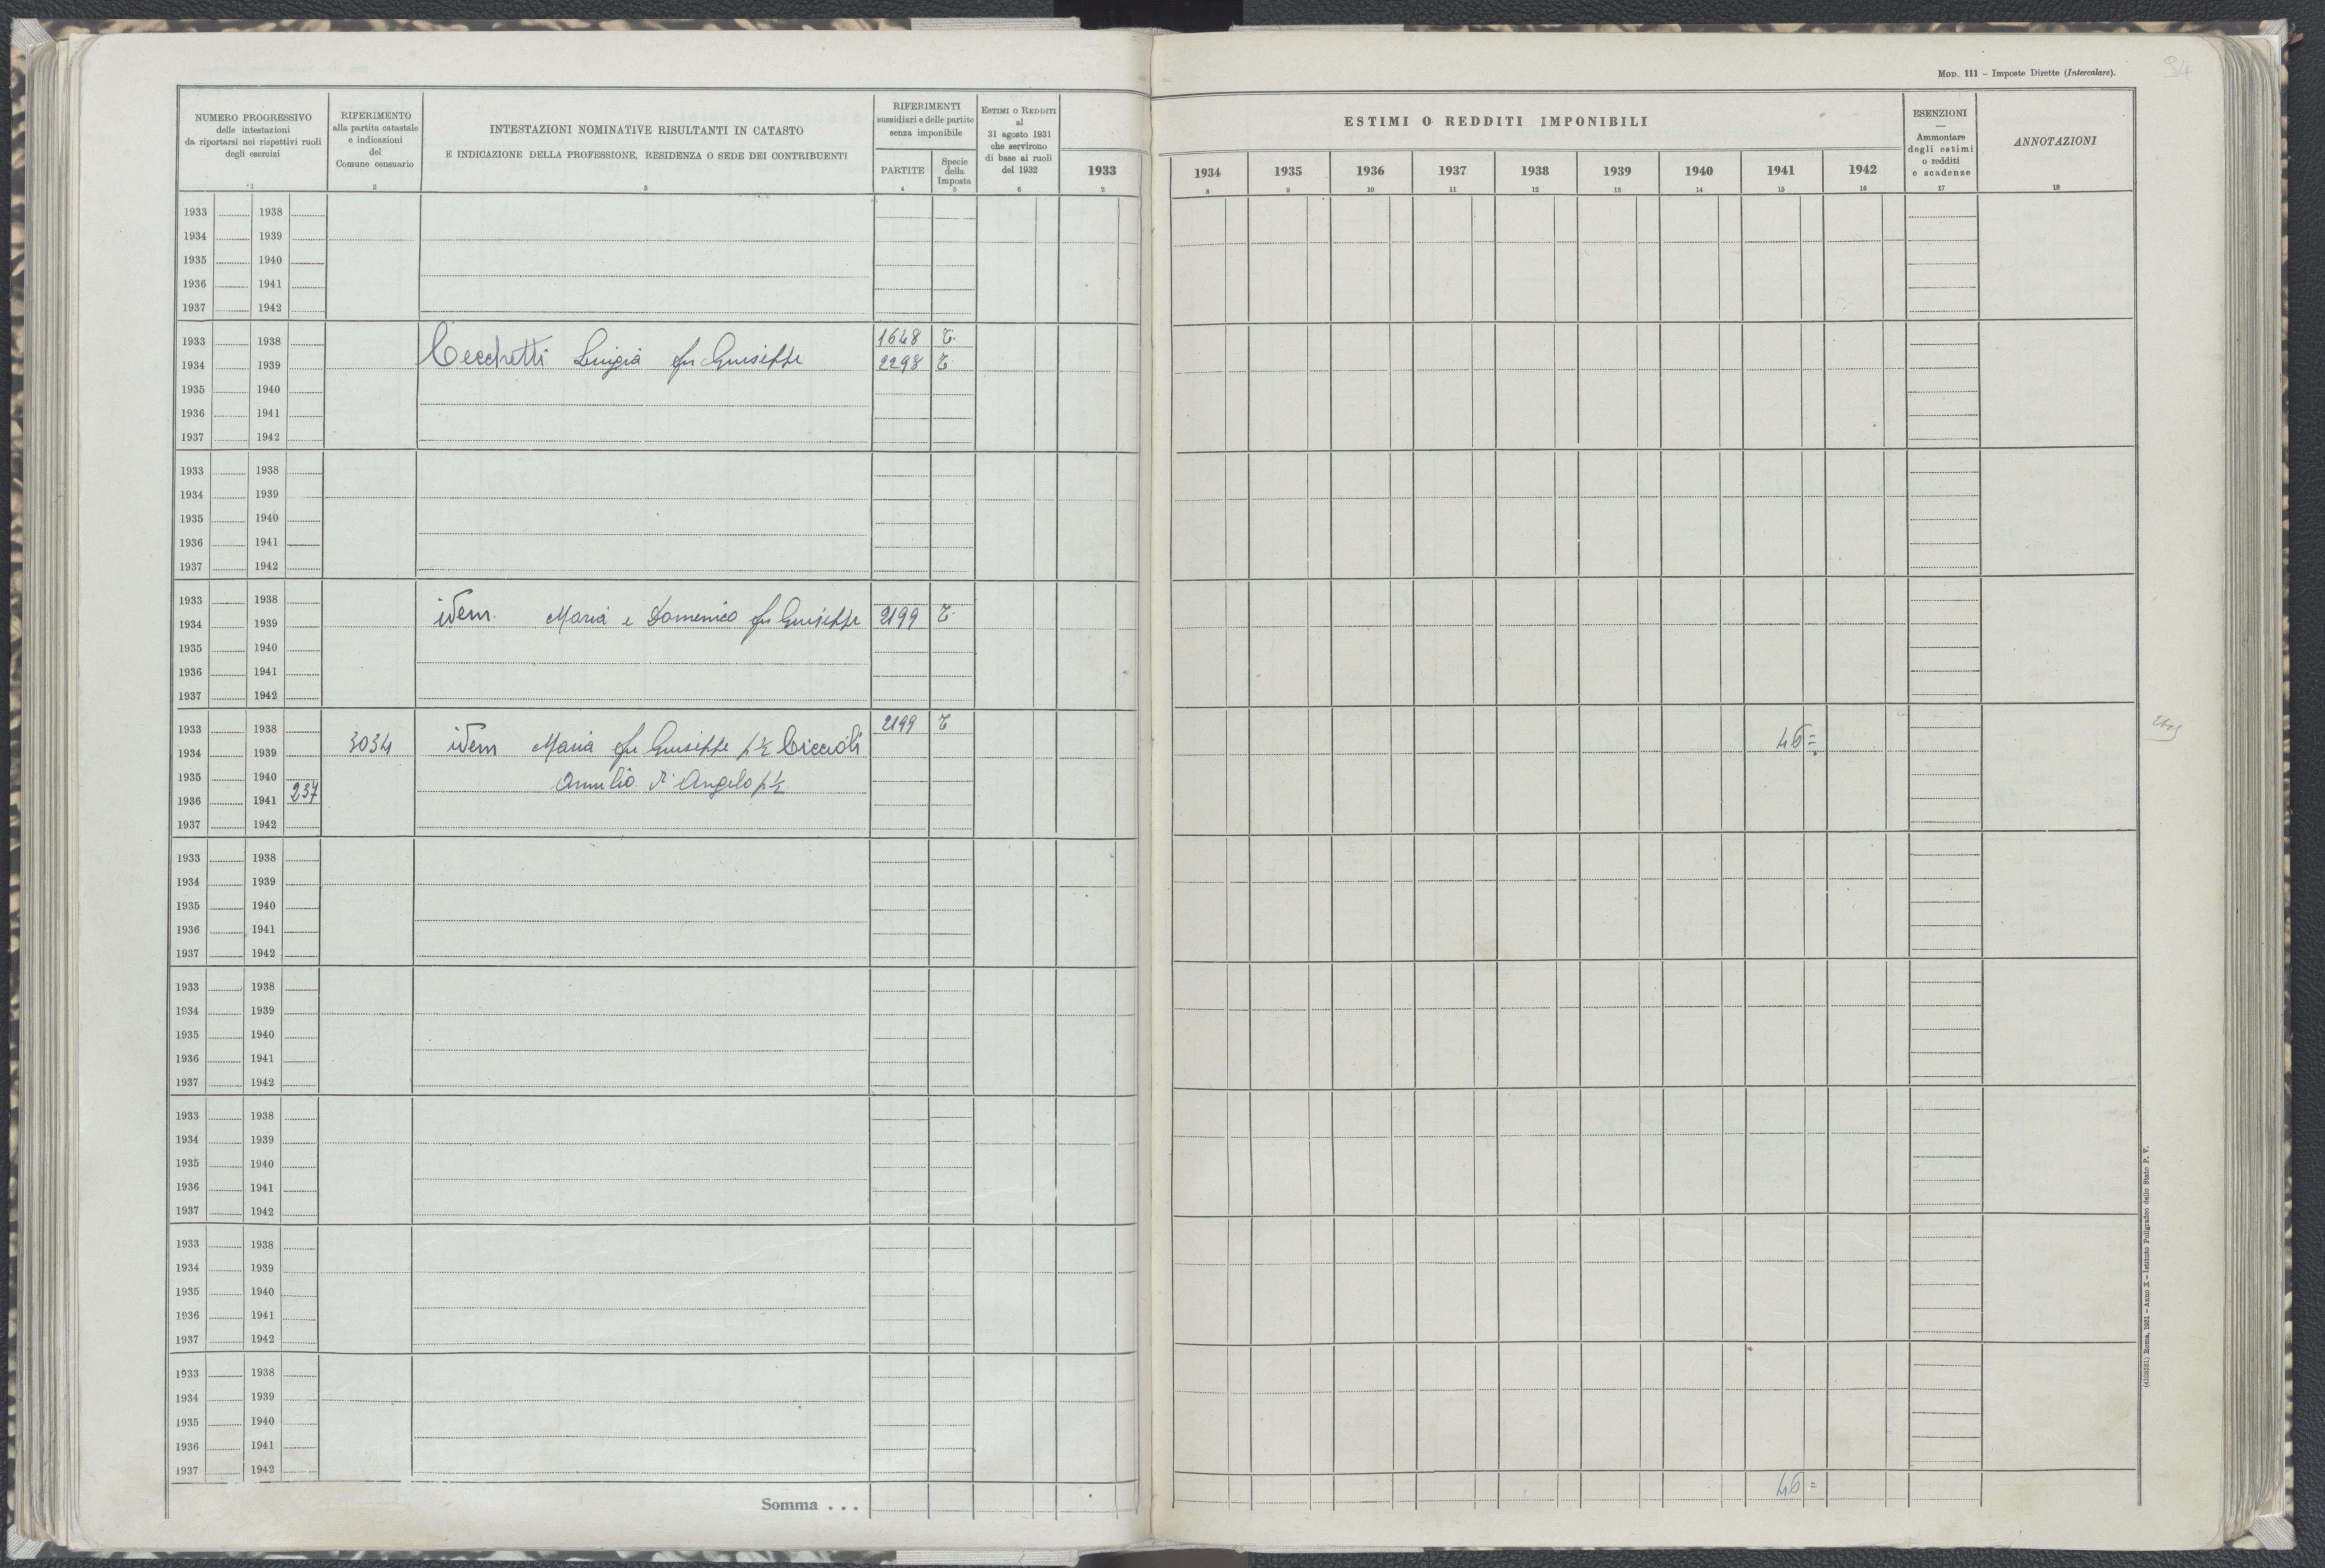 Mod. 111 – Imposte Dirette (Intercalare).
94
NUMERO PROGRESSIVO
delle intestazioni
da riportarsi nei rispettivi ruoli
degli esercizi
1
RIFERIMENTO
alla partita catastale
e indicazioni
del
Comune censuario
2
INTESTAZIONI NOMINATIVE RISULTANTI IN CATASTO
E INDICAZIONE DELLA PROFESSIONE, RESIDENZA O SEDE DEI CONTRIBUENTI
3
RIFERIMENTI
sussidiari e delle partite
senza imponibile
PARTITE
4
Specie
della
Imposta
5
Estimi o Redditi
al
31 agosto 1931
che servirono
di base ai ruoli
del 1932
6
1933
7
ESTIMI O REDDITI IMPONIBILI
1934 1935 1936 1937 1938 1939 1940 1941 1942
8 9 10 11 12 13 14 15 16
ESENZIONI
—
Ammontare
degli estimi
o redditi
e scadenze
17
ANNOTAZIONI
18
1933 1938
1934 1939
1935 1940
1936 1941
1937 1942
1933 1938 1648 T.
1934 1939 Cecchetti Luigia fu Giuseppe 2298 T
1935 1940
1936 1941
1937 1942
1933 1938
1934 1939
1935 1940
1936 1941
1937 1942
1933 1938
1934 1939 idem. Maria e Domenico fu Giuseppe 2199 T.
1935 1940
1936 1941
1937 1942
1933 1938 2199 T
1934 1939 3034 idem Maria fu Giuseppe p½ Ciccioli 46=
1935 1940 d'Angelo p½
1936 1941 237
1937 1942
1933 1938
1934 1939
1935 1940
1936 1941
1937 1942
1933 1938
1934 1939
1935 1940
1936 1941
1937 1942
1933 1938
1934 1939
1935 1940
1936 1941
1937 1942
1933 1938
1934 1939
1935 1940
1936 1941
1937 1942
1933 1938
1934 1939
1935 1940
1936 1941
1937 1942
Somma . . . 46=
(4103531) Roma, 1931 – Anno X – Istituto Poligrafico dello Stato P. V.